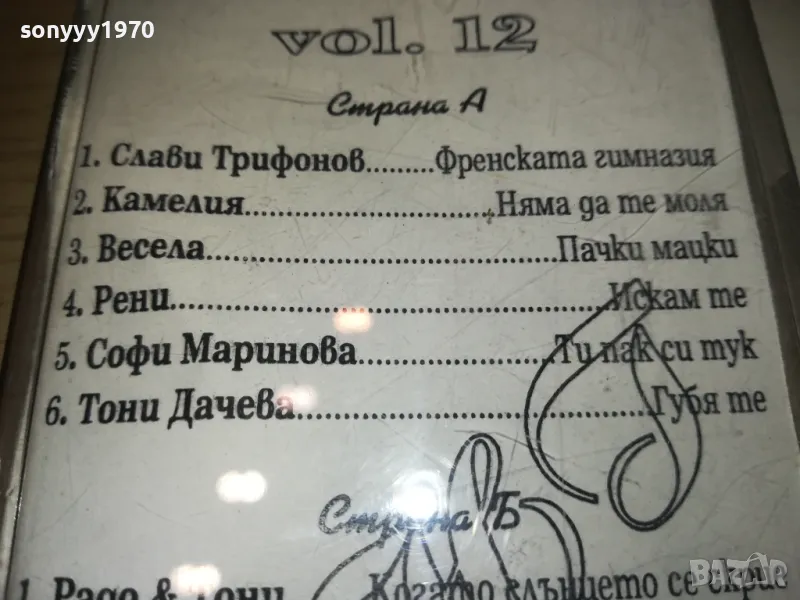 sonyyy1970
vol. 12
Страна А
1. Слави Трифонов.........Френската гимназия
2. Камелия................................Няма да те моля
3. Весела...............................................Пачки мацки
4. Рени.........................................................Искам те
5. Софи Маринова.........................Ти пак си тук
6. Тони Дачева..............................................Губя те
Страна Б
1. Радо & Тони Когато слънцето се скрие
BAZAR